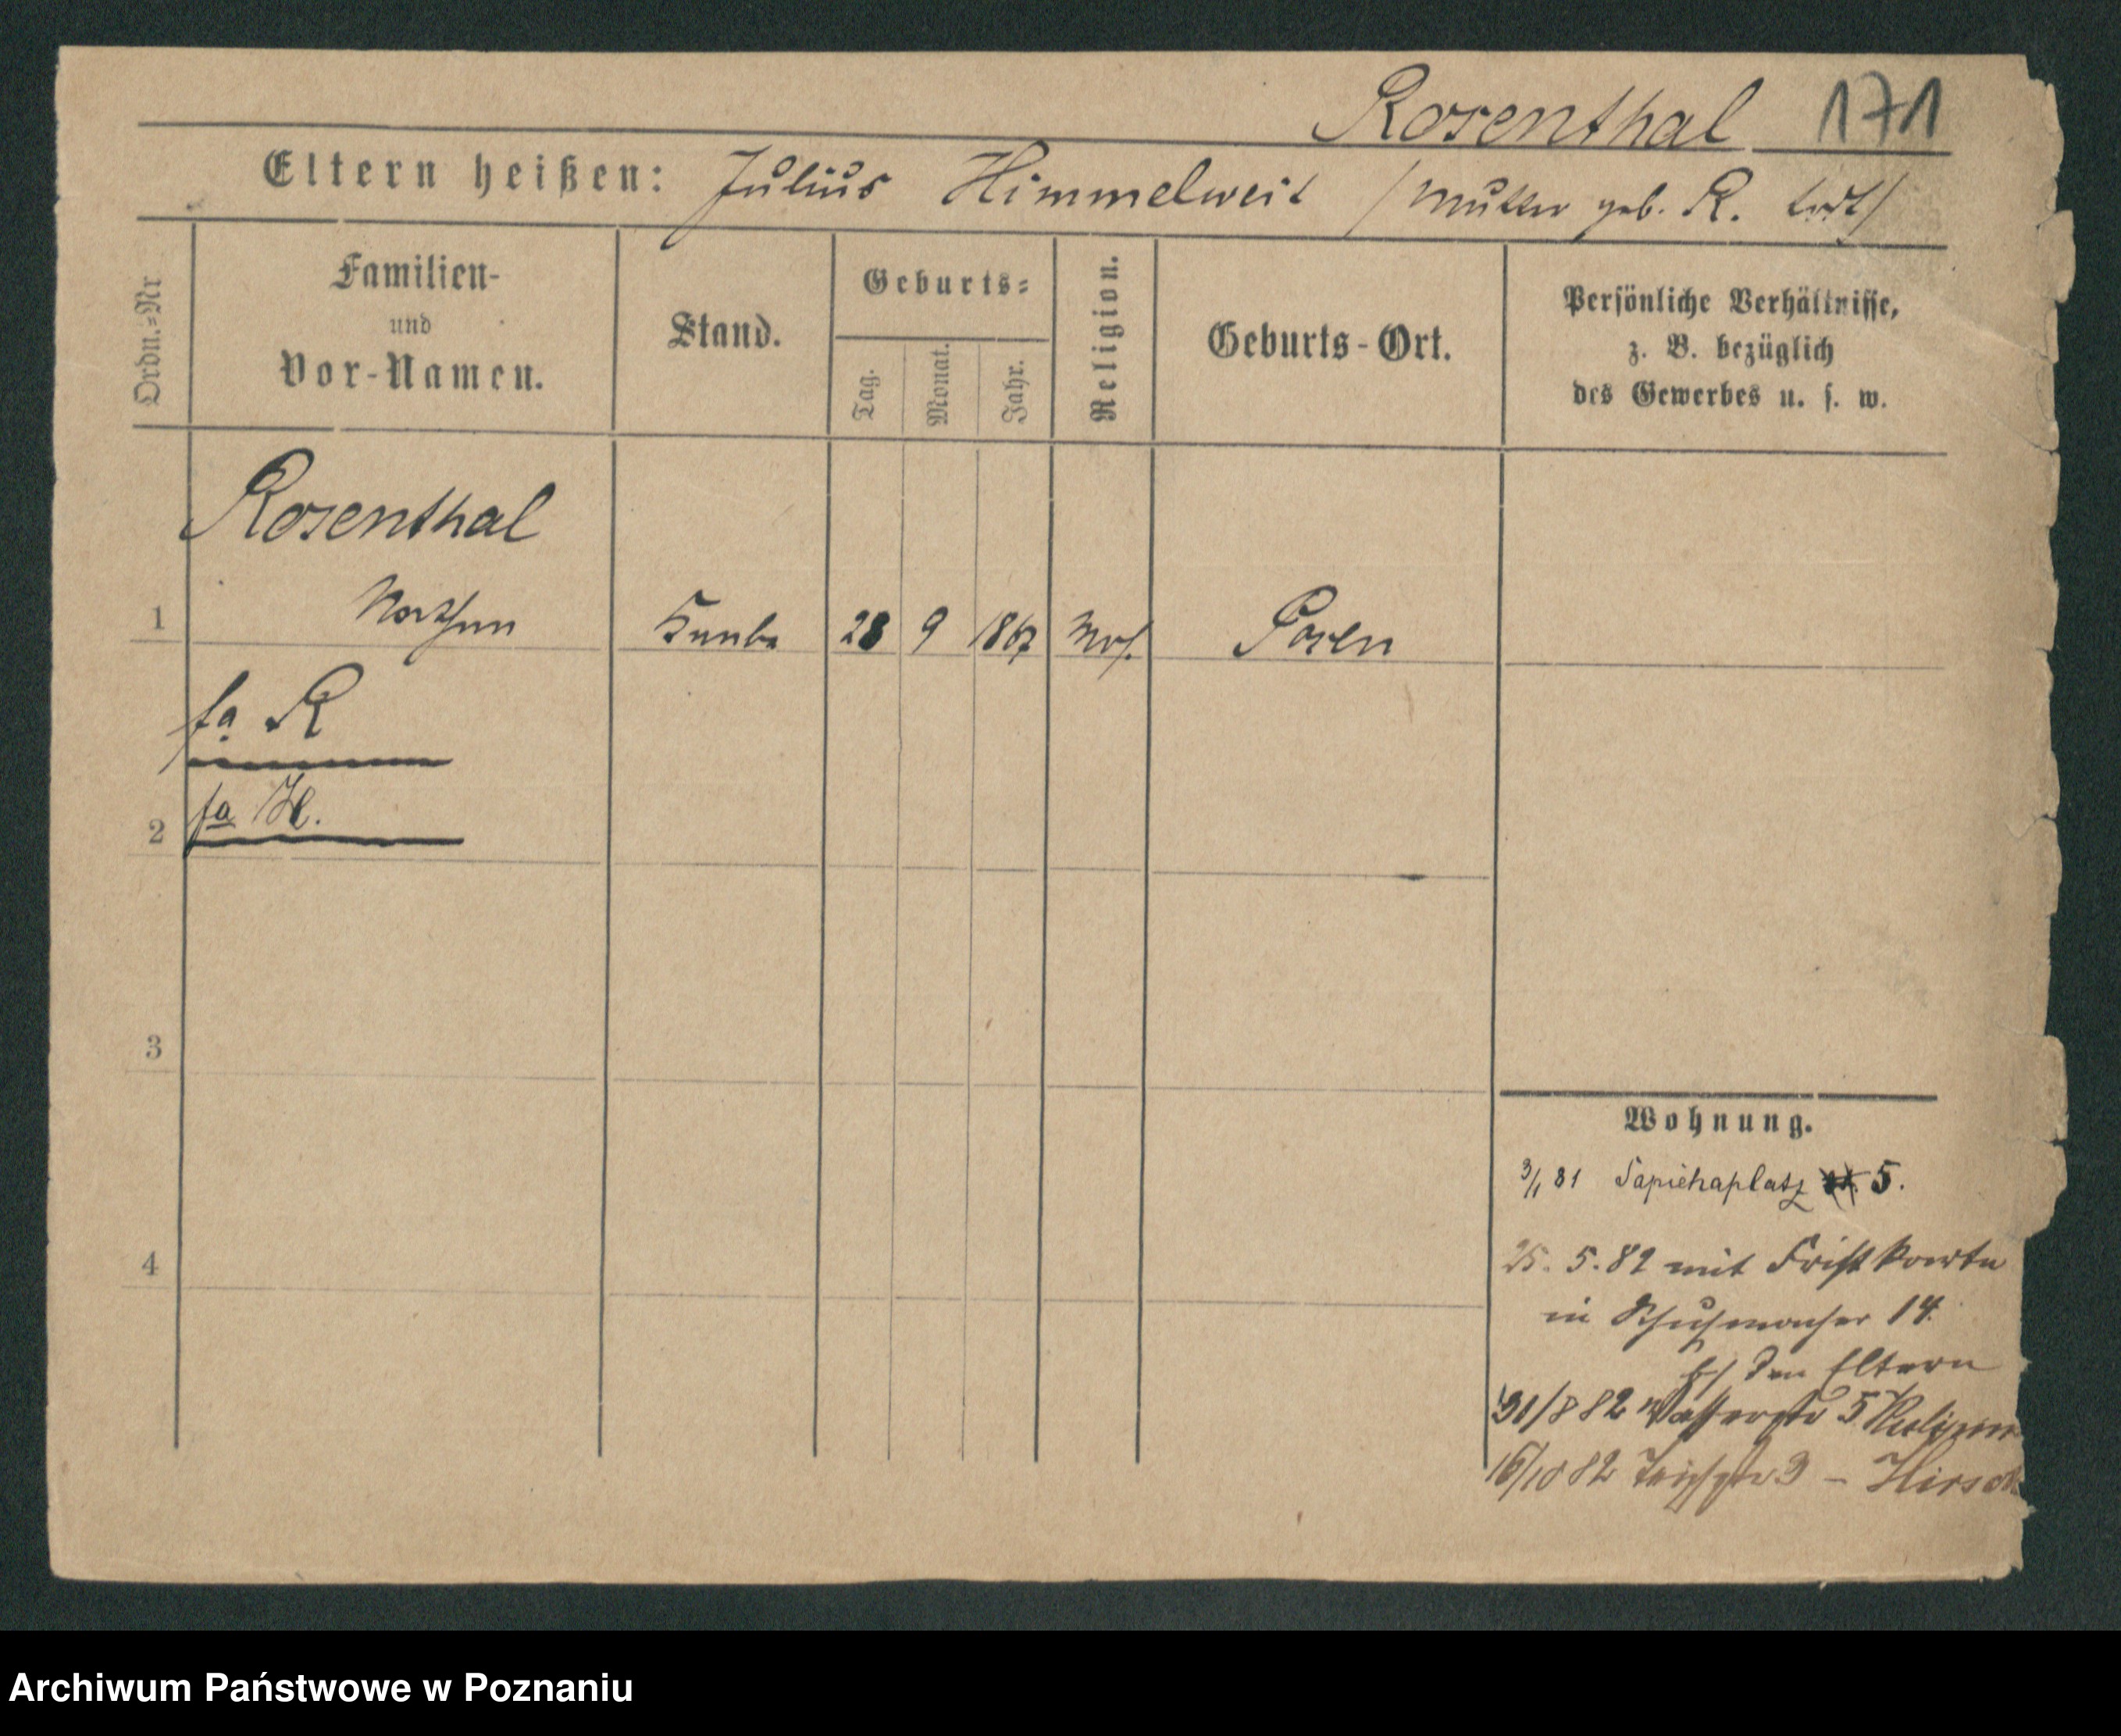 Rosenthal 171
Eltern heißen: Julius Himmelweit /Mutter geb. R. todt/
Ordn.-Nr
Familien-
und
Vor-Namen.
Stand.
Geburts-
Tag. Monat. Jahr.
Religion.
Geburts-Ort.
Persönliche Verhältnisse,
z. B. bezüglich
des Gewerbes u. s. w.
Rosenthal
1 Nathan Knabe 28 9 1867 mos. Posen
fa R
2 fa H.
3
4
Wohnung.
3/1 81 Sapiehaplatz 5.
25. 5. 82 mit Frist Karte
in Schuhmacher 14.
den Eltern
31/8 82 Wasserstr 5
16/10 82 3 – Hirsch
Archiwum Państwowe w Poznaniu